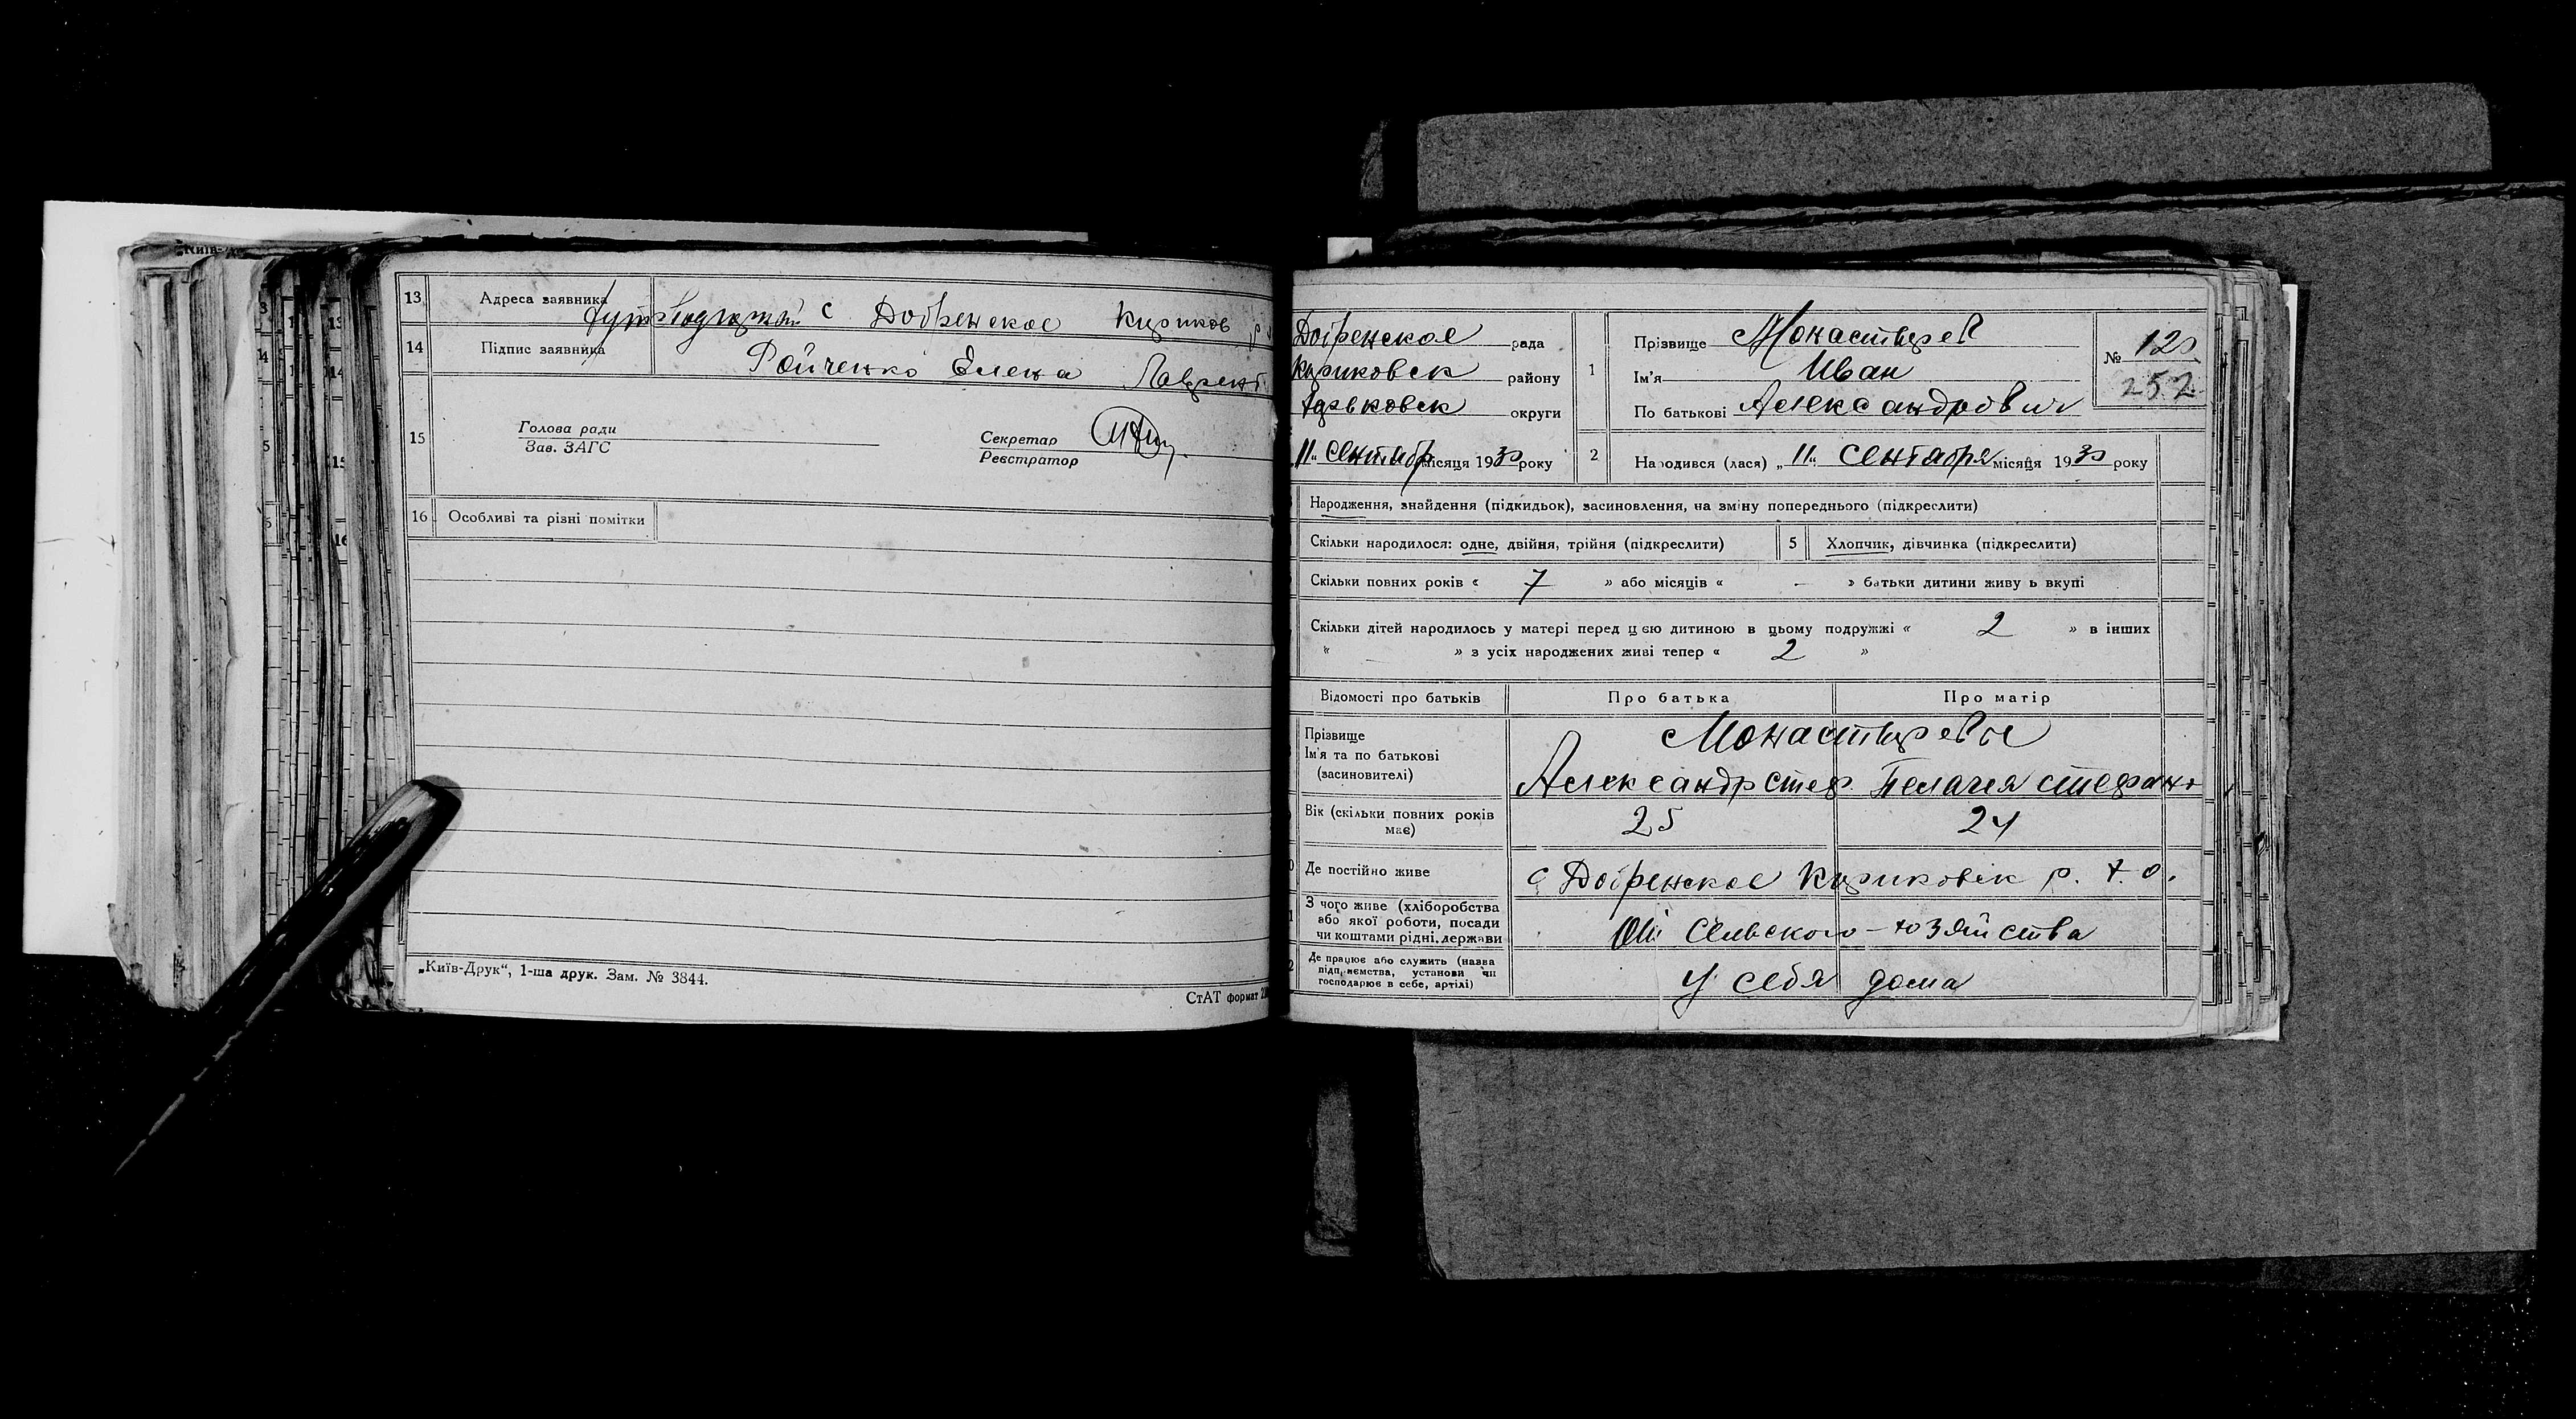 13 Адреса заявника с Добренское Куриков р
14 Підпис заявника Ройченко Елена Лаврент
15 Голова ради
Зав. ЗАГС
Секретар
Реєстратор
16 Особливі та різні помітки
„Київ-Друк“, 1-ша друк. Зам. № 3844.
СтАТ формат
Добренское рада
Куриковск району
Харьковск округи
11 Сентябр місяця 1930 року
1 Прізвище Монастырев
Ім'я Иван
По батькові Александрович
№ 120
252
2 Народився (лася) „11“ Сентября місяця 1930 року
Народження, знайдення (підкидьок), засиновлення, на зміну попереднього (підкреслити)
Скільки народилося: одне, двійня, трійня (підкреслити) 5 Хлопчик, дівчинка (підкреслити)
Скільки повних років « 7 » або місяців « – » батьки дитини живу ь вкупі
Скільки дітей народилось у матері перед цією дитиною в цьому подружжі « 2 » в інших
« » з усіх народжених живі тепер « 2 »
Відомості про батьків Про батька Про матір
Прізвище
Ім'я та по батькові
(засновителі)
Монастыревы
Александр Стеф. Пелагея Стефано
Вік (скільки повних років має) 25 24
Де постійно живе с Добренское Куриковск р. Х. о.
З чого живе (хліборобства
або якої роботи, посади
чи коштами рідні, держави
От Сельского-хозяйства
Де працює або служить (назва
підприємства, установи чи
господарює в себе, артілі)
У себя дома